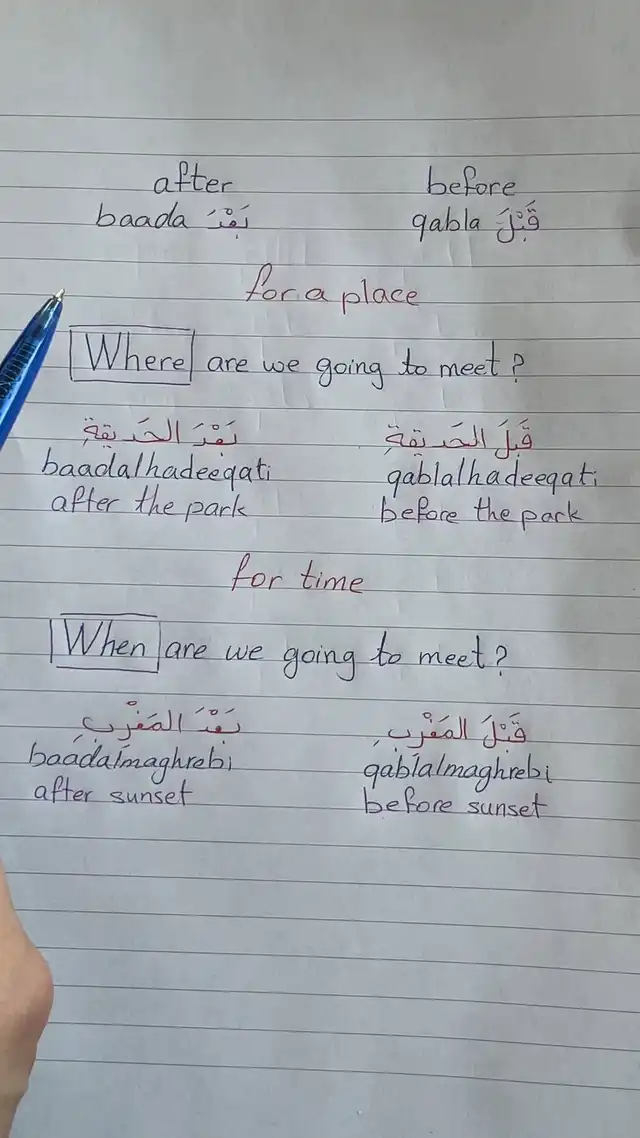 after before
baada بَعْدَ qabla قَبْلَ
for a place
Where are we going to meet?
بَعْدَ الحَديقةِ قَبلَ الحَديقةِ
baadalhadeeqati qablalhadeeqati
after the park before the park
for time
When are we going to meet?
بَعْدَ المَغْرِبِ قَبْلَ المَغْرِبِ
baadalmaghrebi qablalmaghrebi
after sunset before sunset